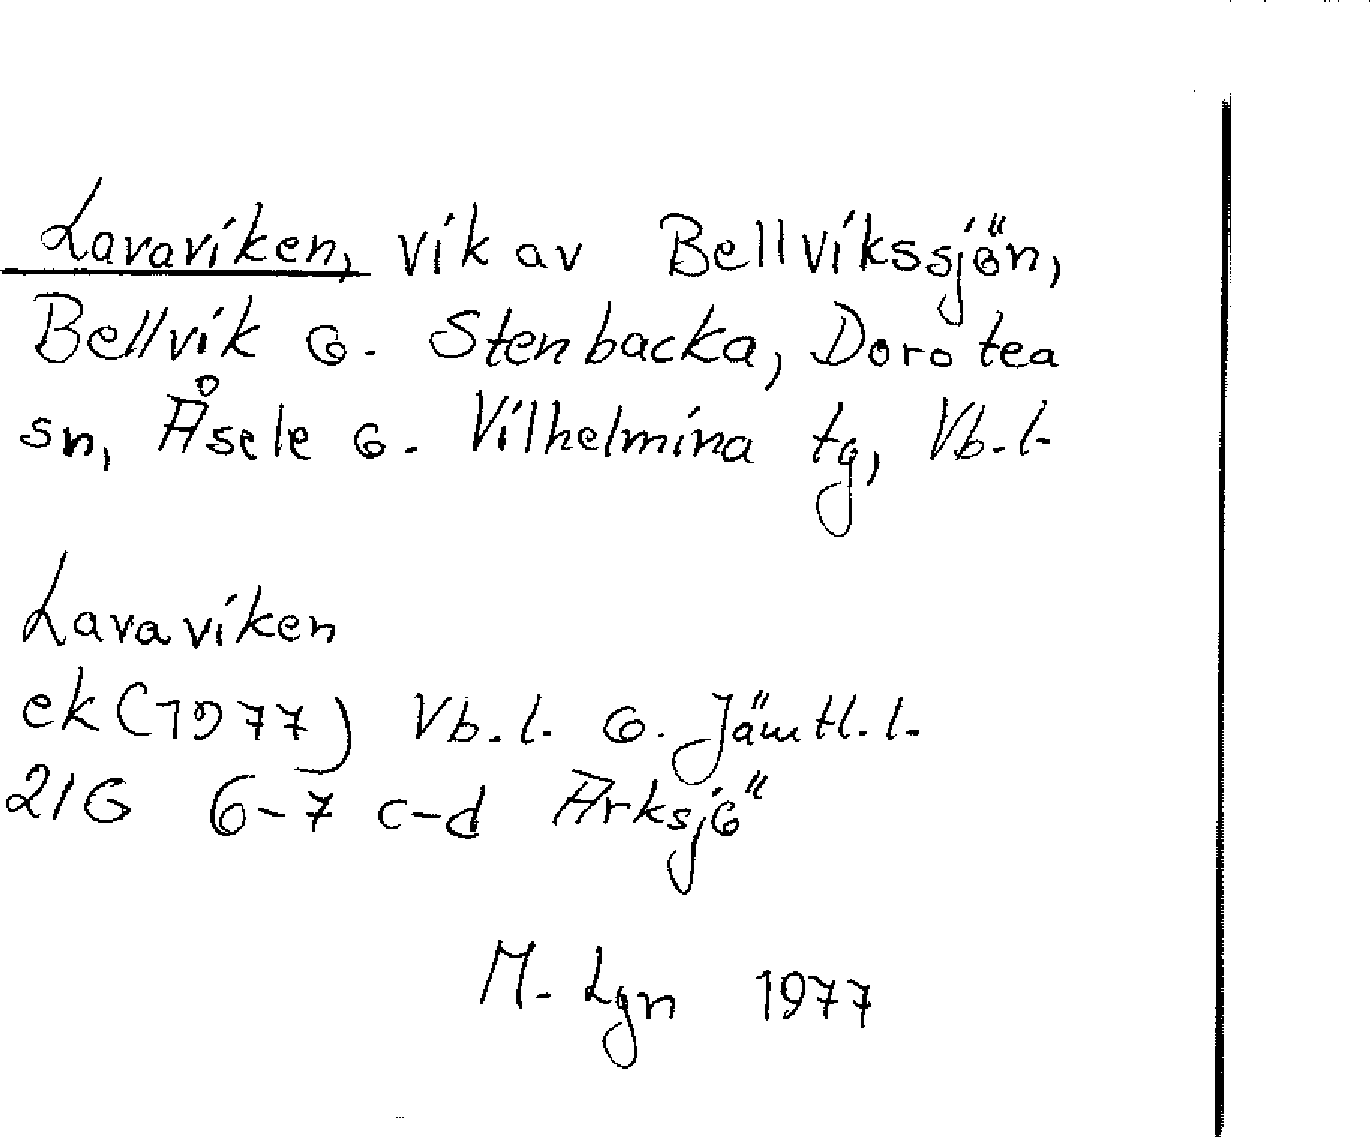 Lavaviken, vik av Bellvikssjön,
Bellvik o. Stenbacka, Dorotea
sn, Åsele o. Vilhelmina tg, Vb.l.
Lavaviken
ek(1977) Vb.l. o. Jämtl.l.
21G 6-7 c-d Arksjö
M. Lgn 1977